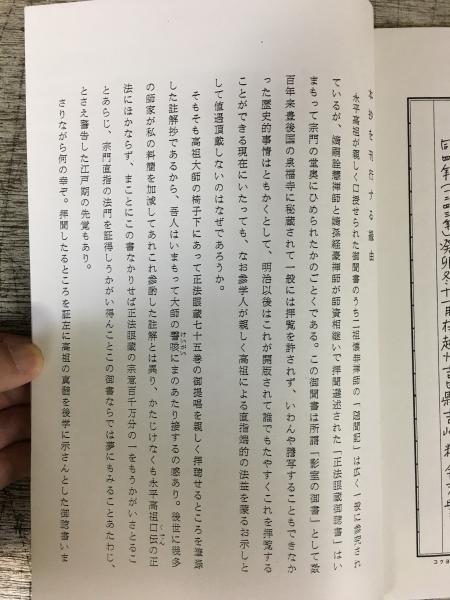 本抄を刊行する縁由
永平高祖が親しく口授せられた御聞書のうち二祖懐弉禅師の「随聞記」は広く一般に
ているが、嫡嗣詮慧禅師と嫡孫経豪禅師が師資相継いで拝聞選述された「正法眼蔵御聴書」はい
まもって宗門の堂奥にひめられたかのごとくである。この御聞書は所謂「影室の御書」として数
百年来豊後国の泉福寺に秘蔵されて一般には拝覧を許されず、いわんや謄写することもできなか
った歴史的事情はともかくとして、明治以後はこれが開版されて誰でもたやすくこれを拝覧する
ことができる現在にいたっても、なお参学人が親しく高祖による直指端的の法益を蒙るお示しと
して値遇頂戴しないのはなぜであろうか。
そもそも高祖大師の椅子下にあって正法眼蔵七十五巻の御提唱を親しく拝聴せるところを筆録
した註解抄であるから、吾人はいまもって大師の謦咳にまのあたり接するの感あり。後世に幾多
の師家が私の料簡を加減してあれこれ参酌した註解とは異り、かたじけなくも永平高祖口伝の正
法にほかならず、まことにこの書なかりせば正法眼蔵の宗意百千万分の一をもうかがいしること
とあらじ、宗門直指の法門を証得しうかがい得んことこの御書ならでは夢にもみることあたわじ、
とさえ警告した江戸期の先覚もあり。
さりながら何の幸ぞ。拝聞したるところを証左に高祖の真髄を後学に示さんとした御聴書いま